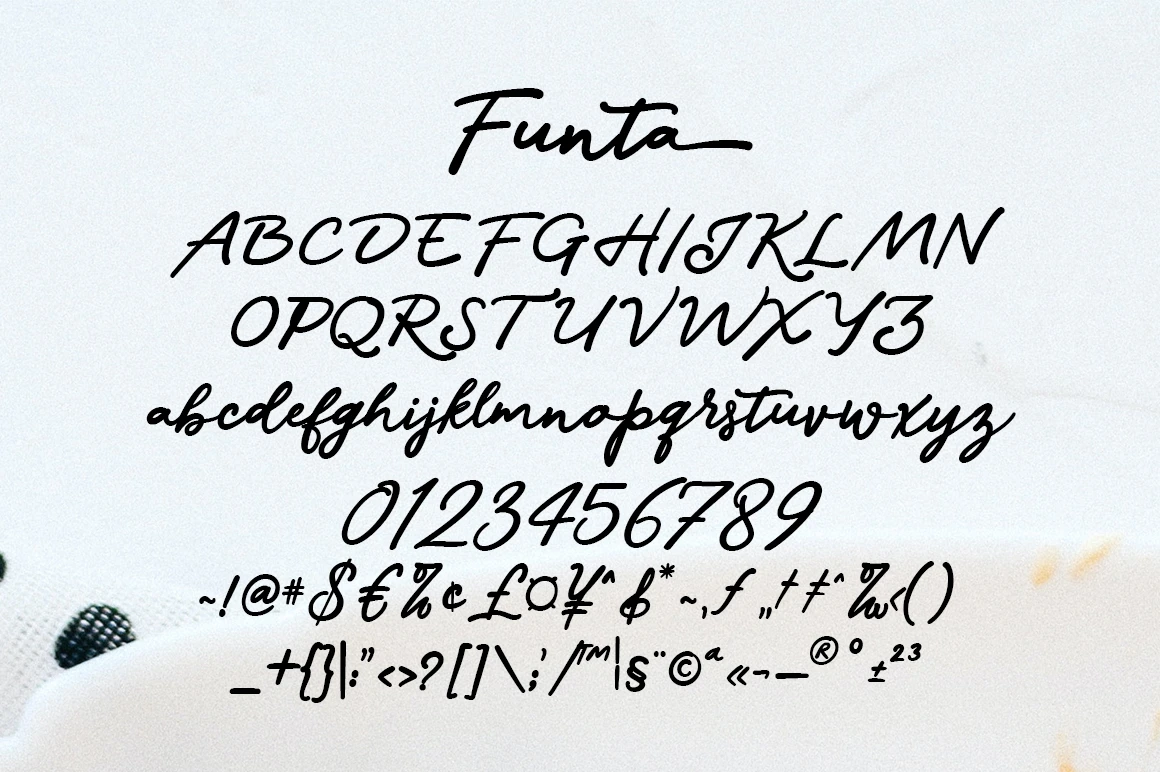 Funta
ABCDEFGHIJKLMN
OPQRSTUVWXYZ
abcdefghijklmnopqrstuvwxyz
0123456789
~!@#$€%¢£¤¥^&*~,ƒ„†‡ˆ‰‹()
_+{}|:”<>?[]\;'/™¦§¨©ª«¬—®°±²³